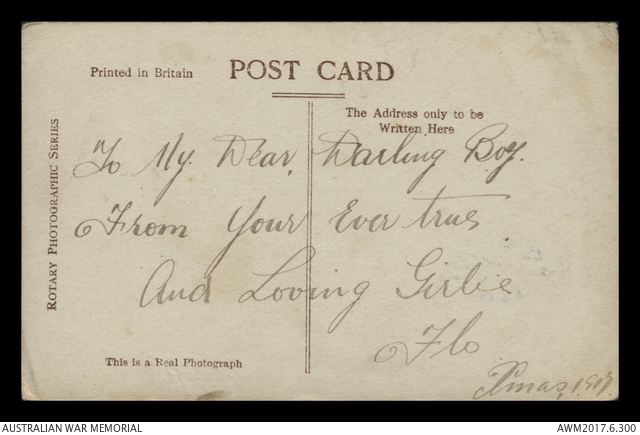 Printed in Britain
POST CARD
The Address only to be
Written Here
ROTARY PHOTOGRAPHIC SERIES
To My Dear Darling Boy.
From Your Ever true
And Loving Girlie
Flo
Xmas, 1917.
This is a Real Photograph
AUSTRALIAN WAR MEMORIAL
AWM2017.6.300